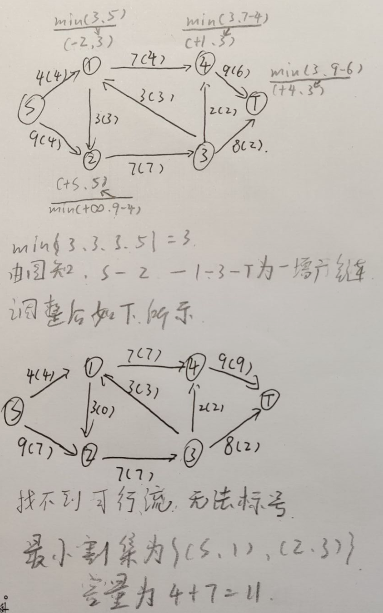 min(3,5) min(3,7-4)
(-2,3) (+1,3)
① 7(4) ④ 9(6) min(3,9-6)
4(4) 3(3) (+4,3)
S 3(3) 2(2) T
9(4) ② 7(7) ③ 8(2)
(+S,5)
min(+∞,9-4)
min{3,3,3,5}=3
由图知,S-2-1-3-T为一增广链
调整后如下所示
① 7(7) ④ 9(9)
4(4) 3(3)
S 3(0) 2(2) T
9(7) ② 7(7) ③ 8(2)
找不到可行流,无法标号
最小割集为{(S,1),(2,3)}
容量为4+7=11.